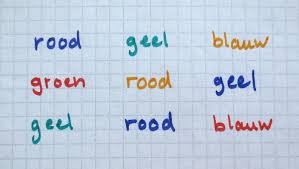 rood geel blauw
groen rood geel
geel rood blauw